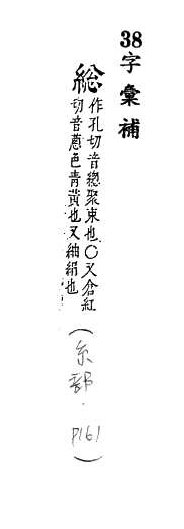 38字彙補
総
作孔切音總聚束也〇又倉紅
切音蔥色青黃也又紬絹也
(糸部·P161)